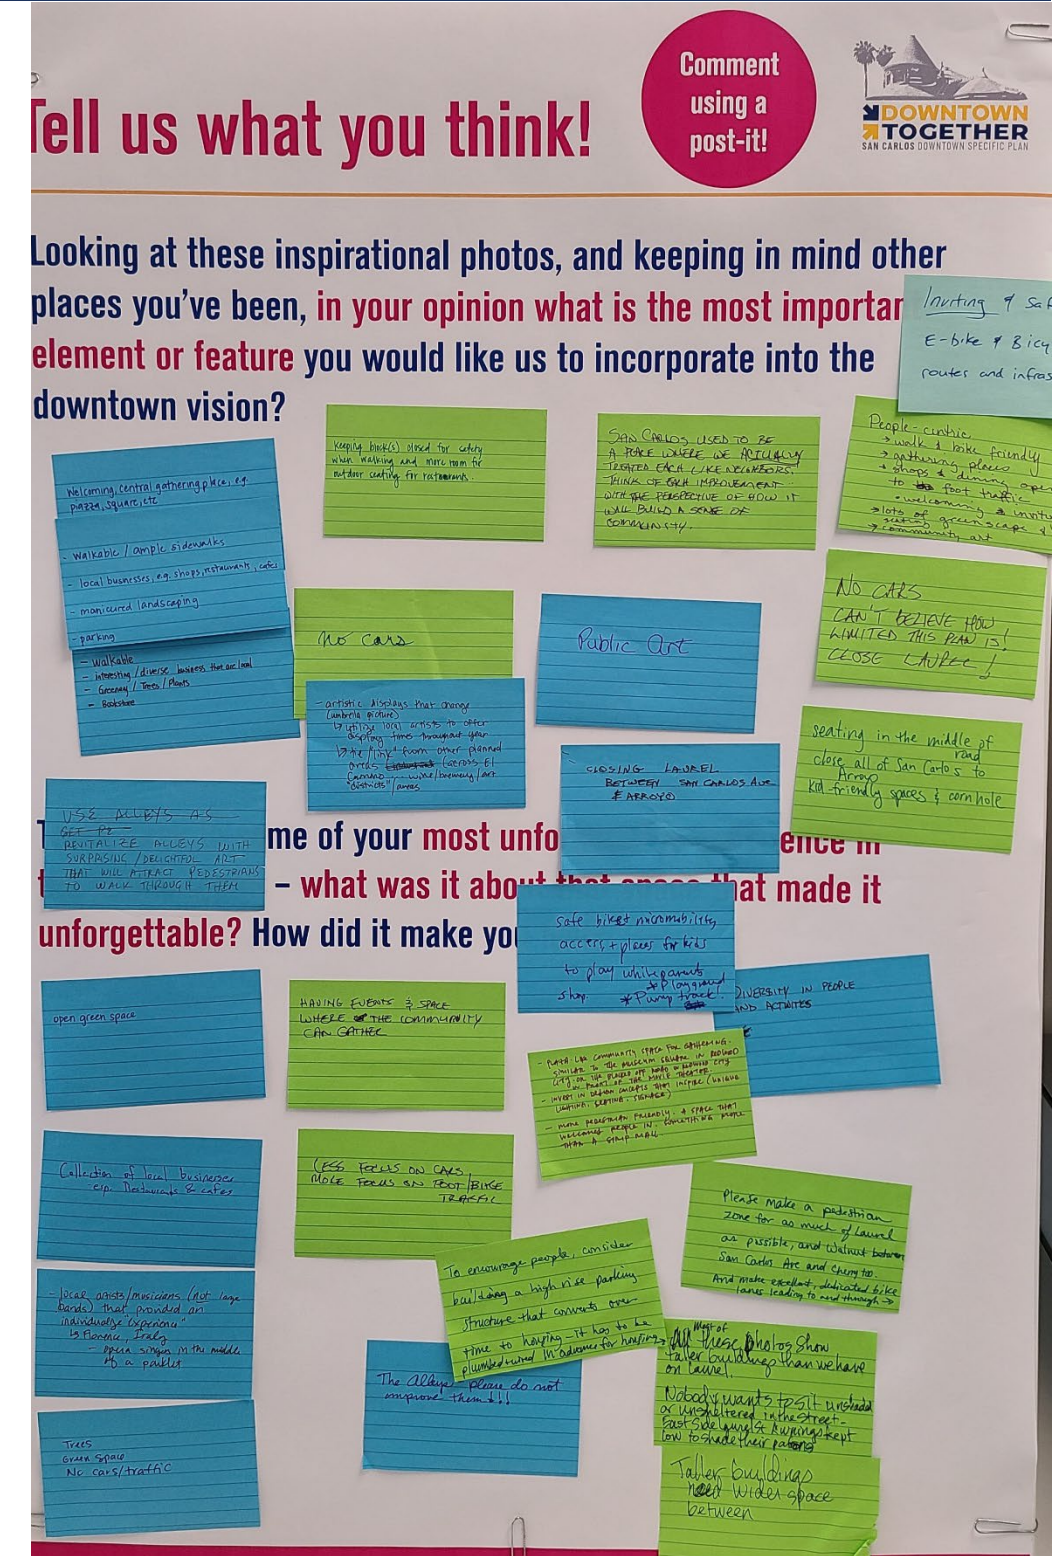 Tell us what you think!
Comment
using a
post-it!
DOWNTOWN
TOGETHER
SAN CARLOS DOWNTOWN SPECIFIC PLAN
Looking at these inspirational photos, and keeping in mind other
places you've been, in your opinion what is the most importan
element or feature you would like us to incorporate into the
downtown vision?
Inviting & Saf
E-bike & Bicy
routes and infras
Welcoming, central gathering place, e.g.
piazza, square, etc
- Walkable / ample sidewalks
- local businesses, e.g. shops, restaurants, cafes
- manicured landscaping
- parking
- Walkable
- interesting / diverse business that are local
- Greenery / Trees / Plants
- Bookstore
Keeping block(s) closed for safety
when walking and more room for
outdoor seating for restaurants.
SAN CARLOS USED TO BE
A PLACE WHERE WE ACTUALLY
TREATED EACH LIKE NEIGHBORS.
THINK OF EACH IMPROVEMENT
WITH THE PERSPECTIVE OF HOW IT
WILL BUILD A SENSE OF
COMMUNITY.
People-centric
→ walk & bike friendly
→ gathering places
→ shops & dining open
to foot traffic
• welcoming & invit
→ lots of greenscape &
seating
→ community art
No Cars
Public Art
NO CARS
CAN'T BELIEVE HOW
LIMITED THIS PLAN IS!
CLOSE LAUREL!
- artistic displays that change
(umbrella picture)
↳ utilize local artists to offer
display items throughout year
↳ tie/"link" from other planned
areas (across El
Camino... wine/brewery/art
"districts"/areas
CLOSING LAUREL
BETWEEN SAN CARLOS AVE
& ARROYO
seating in the middle of
road
close all of San Carlos to
Arroyo
kid-friendly spaces & cornhole
USE ALLEYS AS
REVITALIZE ALLEYS WITH
SURPRISING/DELIGHTFUL ART
THAT WILL ATTRACT PEDESTRIANS
TO WALK THROUGH THEM
T me of your most unfo ence in
t – what was it about that space that made it
unforgettable? How did it make you
safe bike & micromobility
access, + places for kids
to play while parents
shop. * Playground
* Pump track!
DIVERSITY IN PEOPLE
AND ACTIVITIES
open green space
HAVING EVENTS & SPACE
WHERE THE COMMUNITY
CAN GATHER
- PLAZA-LIKE COMMUNITY SPACE FOR GATHERING.
SIMILAR TO THE MUSEUM SQUARE IN REDWOOD
CITY OR THE PLACES OFF ROAD @ REDWOOD CITY
IN FRONT OF THE MOVIE THEATER.
- INVEST IN DESIGN CONCEPTS THAT INSPIRE (UNIQUE
LIGHTING, SEATING, SIGNAGE)
- MORE PEDESTRIAN FRIENDLY. A SPACE THAT
WELCOMES PEOPLE IN. SOMETHING MORE
THAN A STRIP MALL.
Collection of local businesses
esp. Restaurants & cafes
LESS FOCUS ON CARS,
MORE FOCUS ON FOOT/BIKE
TRAFFIC
Please make a pedestrian
zone for as much of Laurel
as possible, and Walnut between
San Carlos Ave and Cherry too.
And make excellent, dedicated bike
lanes leading to and through →
To encourage people, consider
building a high rise parking
structure that converts over
time to housing - it has to be
plumbed & wired in advance for housing
- local artists/musicians (not large
bands) that provided an
individualize "experience"
↳ Florence, Italy
- opera singer in the middle
of a parklet
The Alleys - please do not
improve them!!!
Most of
All these photos show
taller buildings than we have
on Laurel.
Nobody wants to sit unshaded
or unsheltered in the street -
East Side Laurel St Awnings kept
low to shade their patrons
Trees
Green Space
No cars/traffic
Taller buildings
need wider space
between